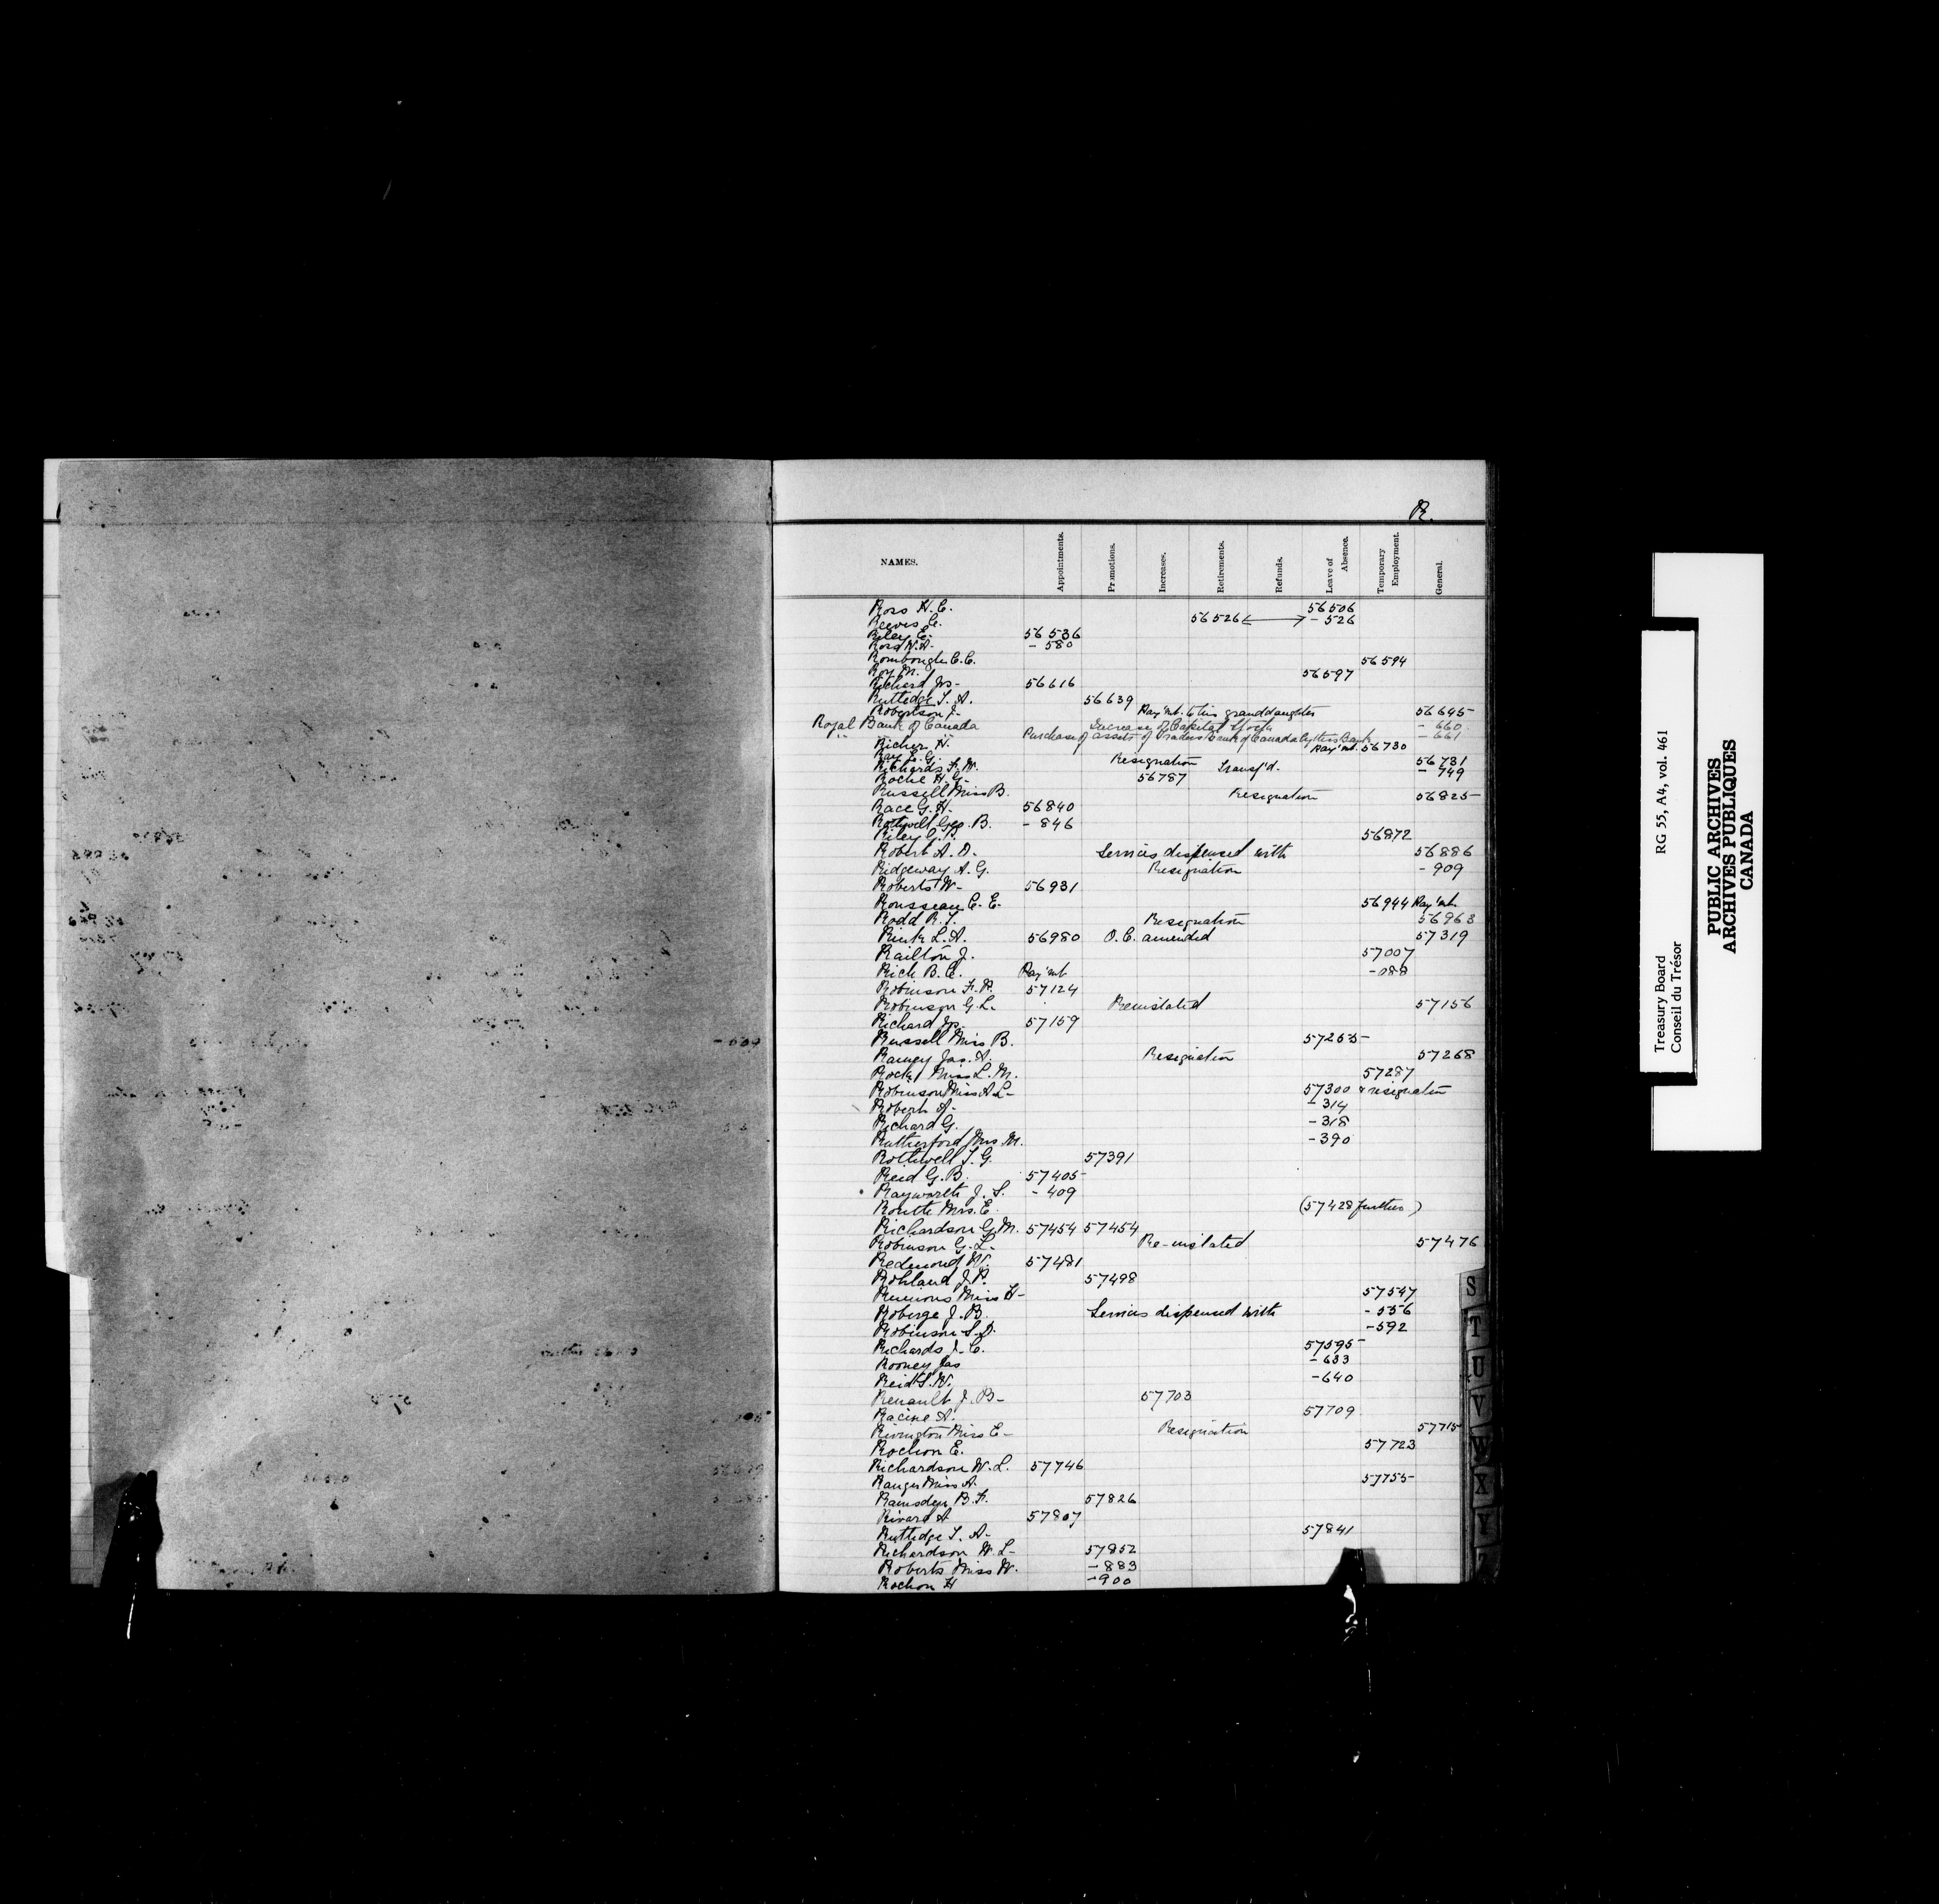 R.
NAMES. Appointments. Promotions. Increases. Retirements. Refunds. Leave of Absence. Temporary Employment. General.
Ross H. C. 56506
Reeves C. 56526 - 526
Riley E. 56536
Ross H. A. - 580
Rombough C. C. 56594
Roy M. 56597
Richard Jos- 56616
Ruttledge T. A. 56639
Robertson J- Pay'mt. to his granddaughter 56645-
Royal Bank of Canada Increase of Capital Stock - 660
" " Purchase of assets of Traders Bank of Canada by this Bank - 661
Richer H. Pay'mt. 56730
Ray L. G. Resignation 56731
Richards F. W. Transf'd. - 749
Roche H. G- 56787
Russell Miss B. Resignation 56825-
Race G. H. 56840
Rothwell Geo. B. - 846
Riley G. 56872
Robert A. D. Services dispensed with 56886
Ridgeway A. G. Resignation - 909
Roberts W- 56931
Rousseau C. E- 56944 Pay'mt.
Rodd R. T. Resignation 56963
Rink L. A. 56980 O. C. amended 57319
Railton J. 57007
Rich B. C. Pay'mt - 088
Robinson F. A. 57124
Robinson G. L. Reinstated 57156
Richard Jos. 57159
Russell Miss B. 57265-
Ramey Jas. A. Resignation 57268
Miss L. M. 57287
Robinson Miss A L- 57300 & resignation
Robert A- - 314
Richard G. - 318
Rutherford Mrs M. - 390
Rothwell T. G. 57391
Reid G. B. 57405-
Rayworth J. S. - 409
Routh Mrs. E. (57428 further)
Richardson G. M. 57454 57454
Robinson G. L- Re-instated 57476
Redmond W. 57481
Rohland J. P. 57498
Miss H- 57547
Roberge J. B. Services dispensed with - 556
Robinson S. D. - 592
Richards J. C. 57595-
Rooney Jas - 633
Reid S. W. - 640
Renault J. B- 57703
Racine A. 57709
Rivington Miss E- Resignation 57715
Rochon E. 57723
Richardson W. L. 57746
Ranger Miss A. 57755-
Ramsden B. F. 57826
Rivard A 57807
Ruttledge T. A- 57841
Richardson W. L- 57852
Roberts Miss W. - 883
Rochon H - 900
S
T
U
V
W
X
Y
Z
Treasury Board RG 55, A4, vol. 461
Conseil du Trésor
PUBLIC ARCHIVES
ARCHIVES PUBLIQUES
CANADA